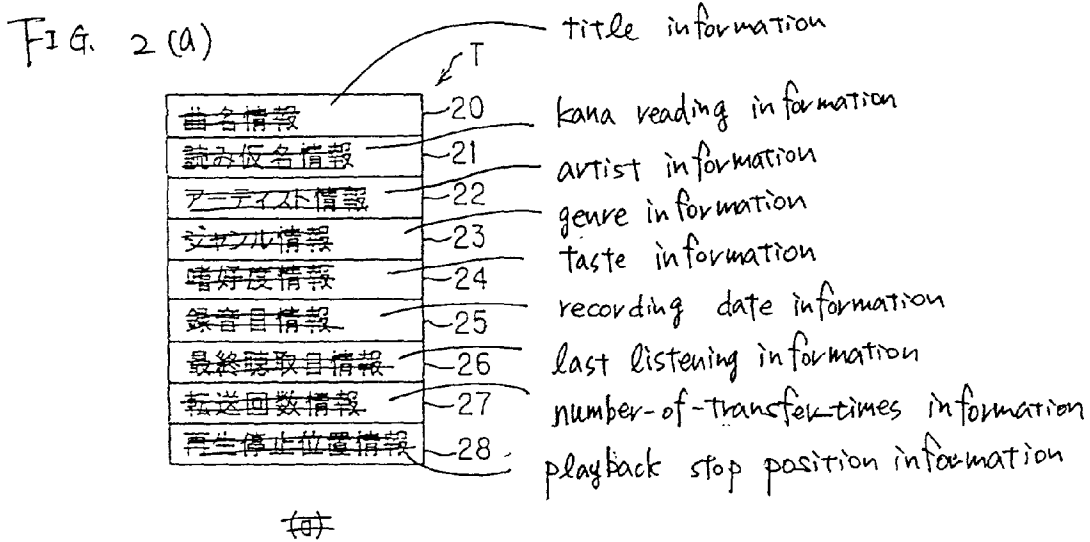 FIG. 2(a)
T
曲名情報 20 title information
読み仮名情報 21 kana reading information
アーティスト情報 22 artist information
ジャンル情報 23 genre information
嗜好度情報 24 taste information
録音日情報 25 recording date information
最終聴取日情報 26 last listening information
転送回数情報 27 number-of-transfer-times information
再生停止位置情報 28 playback stop position information
(a)